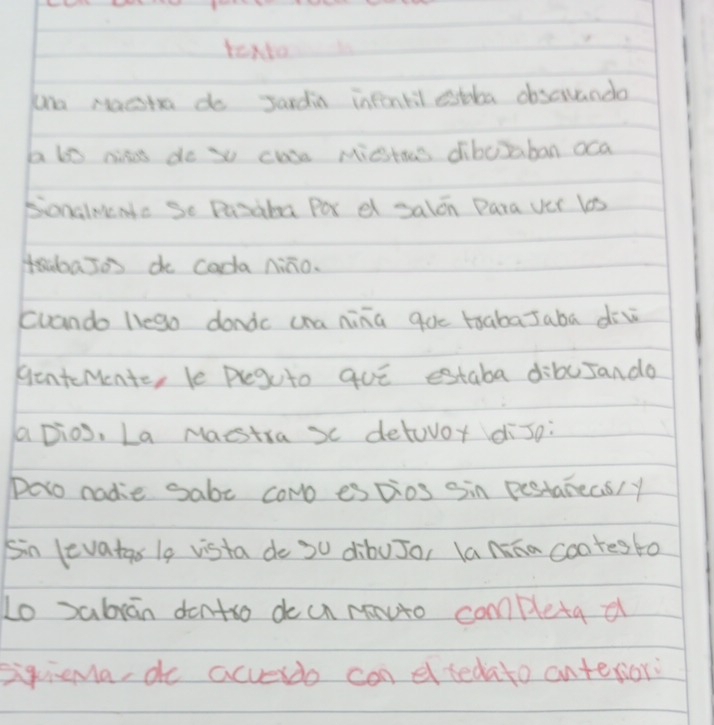 texto
una Maestra de Jardin infantil estaba observando
a los niños de su clase Mientras dibuJaban oca
sionalMente Se Pasaba Por el salón Para ver los
trabaJos de cada niño.
cuando llego donde una niña que trabaJaba dili
genteMente, le Preguto qué estaba dibuJando
a Dios. La Maestra se detuvo y diJo:
Pero nadie sabe coMo es Dios Sin Pestañear y
Sin levatar la vista de su dibuJo, la niña contesto
Lo sabrán dentro de un Minuto completa el
siquiema de acuerdo con el redato anterior: